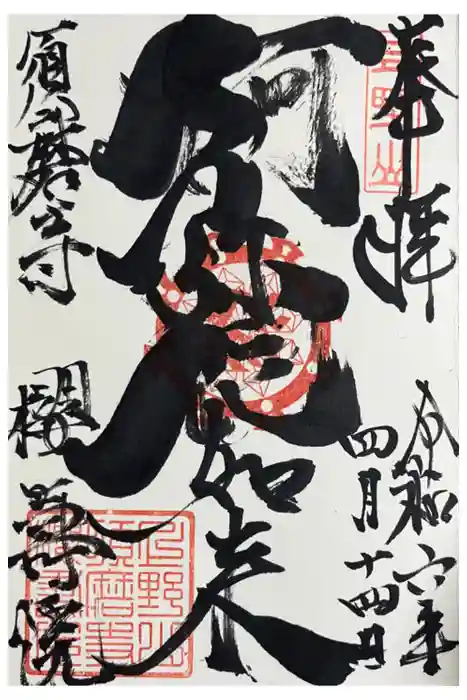 奉拝
上野山
令和六年
四月十四日
阿弥陀如来
須磨寺
櫻壽院
上野山
須磨寺